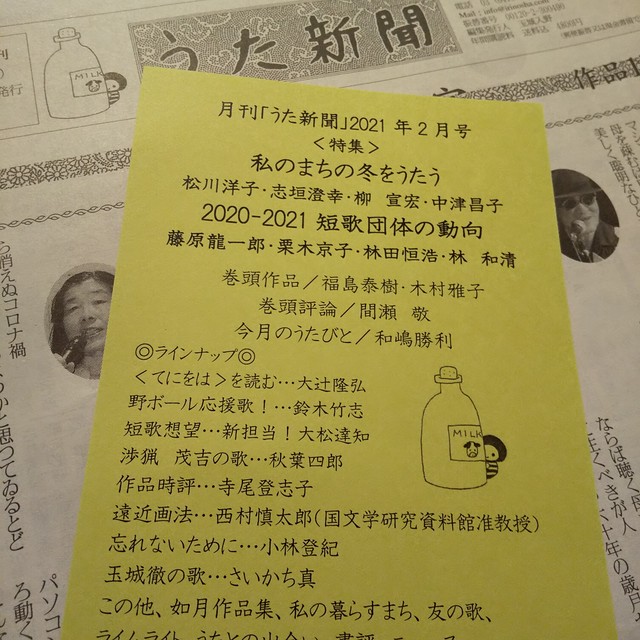 うた新聞
月刊「うた新聞」2021年2月号
<特集>
私のまちの冬をうたう
松川洋子・志垣澄幸・柳 宣宏・中津昌子
2020-2021 短歌団体の動向
藤原龍一郎・栗木京子・林田恒浩・林 和清
巻頭作品／福島泰樹・木村雅子
巻頭評論／間瀬 敬
今月のうたびと／和嶋勝利
◎ラインナップ◎
<てにをは>を読む…大辻隆弘
野ボール応援歌！…鈴木竹志
短歌想望…新担当！大松達知
渉猟 茂吉の歌…秋葉四郎
作品時評…寺尾登志子
遠近画法…西村慎太郎(国文学研究資料館准教授)
忘れないために…小林登紀
玉城徹の歌…さいかち真
この他、如月作品集、私の暮らすまち、友の歌、
MILK
MILK
発行
ら消えぬコロナ禍
パソコ
ろ動く